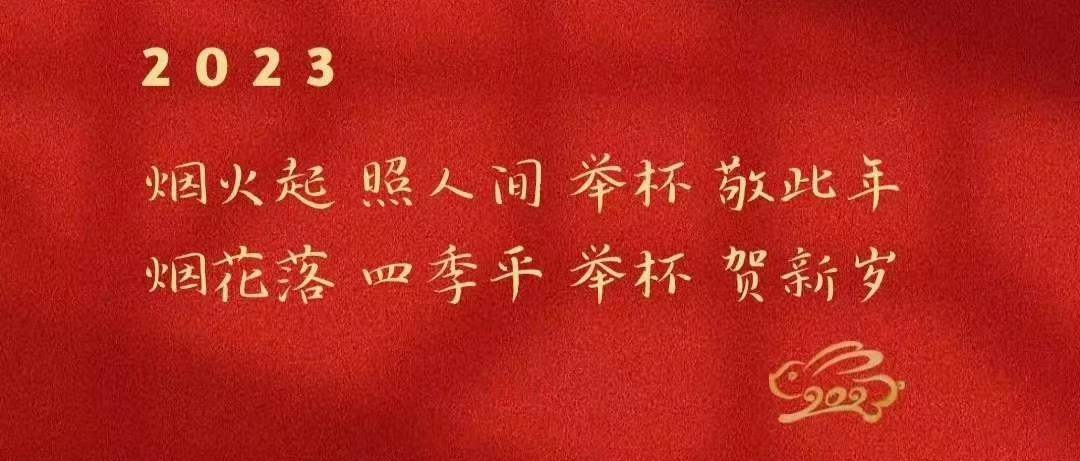 2023
烟火起 照人间 举杯 敬此年
烟花落 四季平 举杯 贺新岁
2023